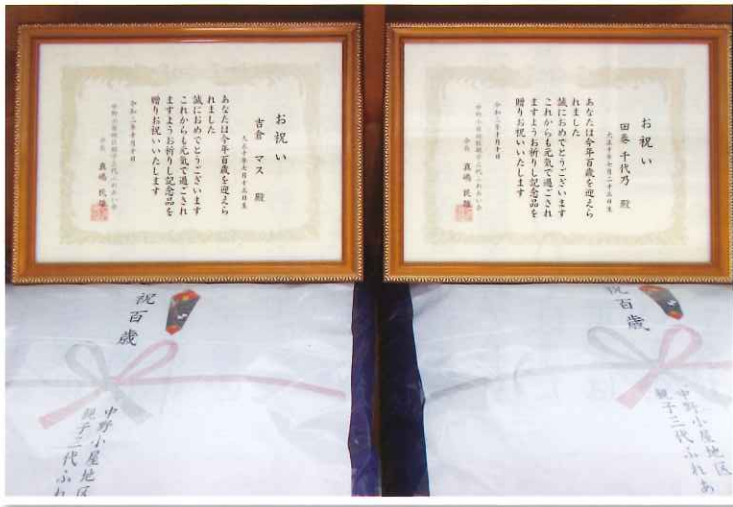 お祝い
吉倉 マス 殿
大正十年七月十五日生
あなたは今年百歳を迎えら
れました
誠におめでとうございます
これからも元気で過ごされ
ますようお祈りし記念品を
贈りお祝いいたします
令和二年十月十日
中野小屋地区親子三代ふれあい会
会長 真嶋 民雄
お祝い
田巻 千代乃 殿
大正十年七月二十五日生
あなたは今年百歳を迎えら
れました
誠におめでとうございます
これからも元気で過ごされ
ますようお祈りし記念品を
贈りお祝いいたします
令和二年十月十日
中野小屋地区親子三代ふれあい会
会長 真嶋 民雄
祝百歳
中野小屋地区
親子三代ふれ
祝百歳
中野小屋地区
親子三代ふれあ